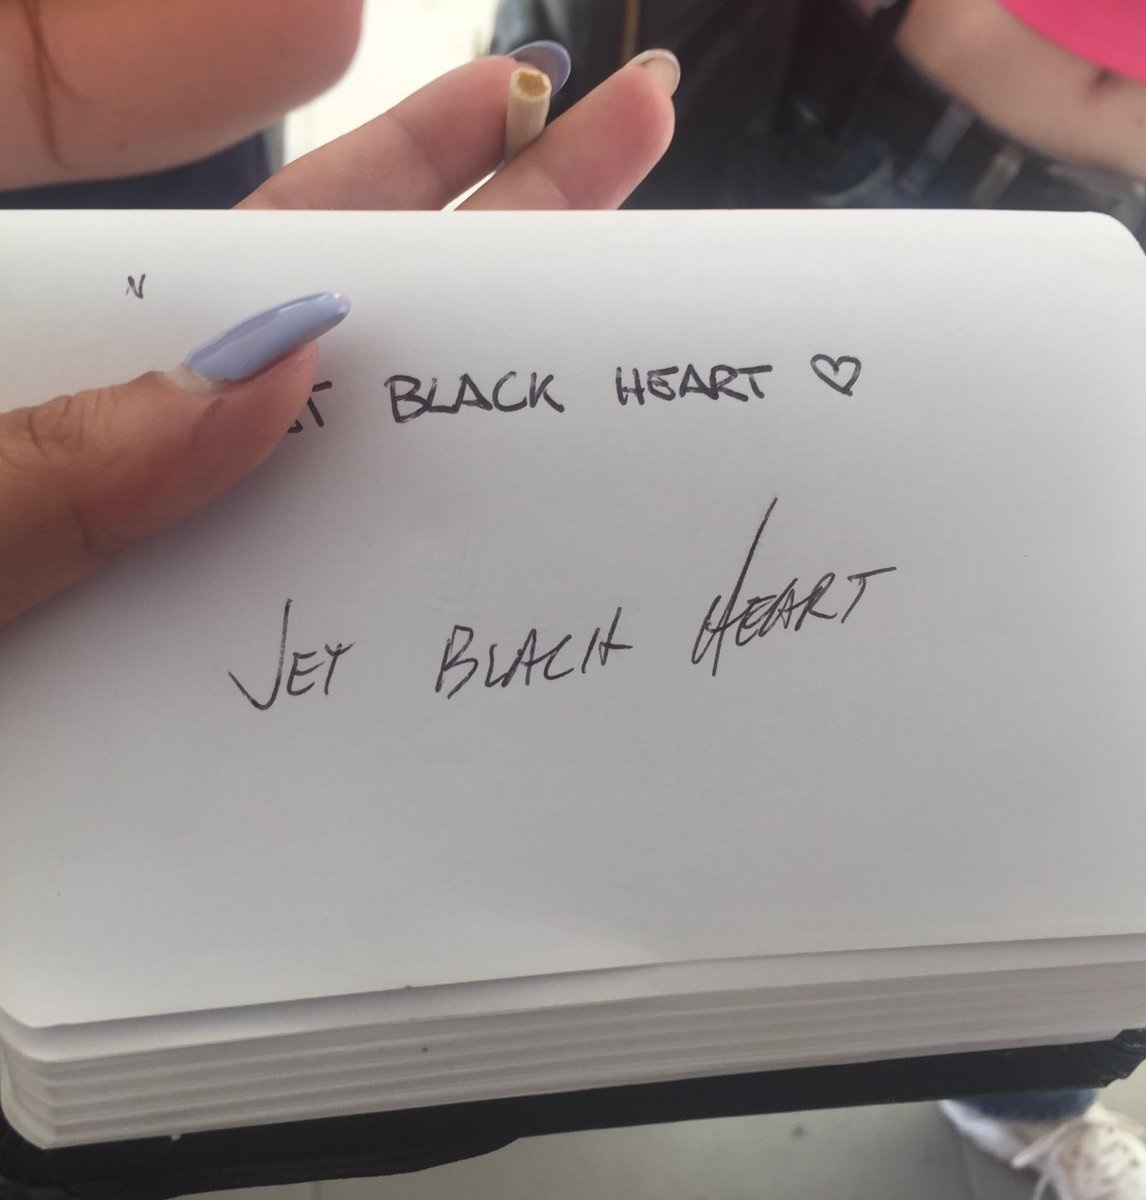 N
ET BLACK HEART ♡
JET BLACK HEART